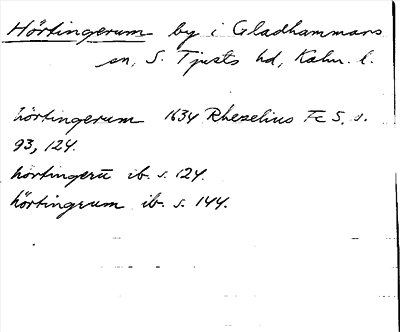 Hörtingerum by i Gladhammars
sn, S. Tjusts hd, Kalm. l.
hörtingerum 1634 Rhezelius Fc 5. s.
93, 124.
hörtingerū ib. s. 124.
hörtingrum ib. s. 144.